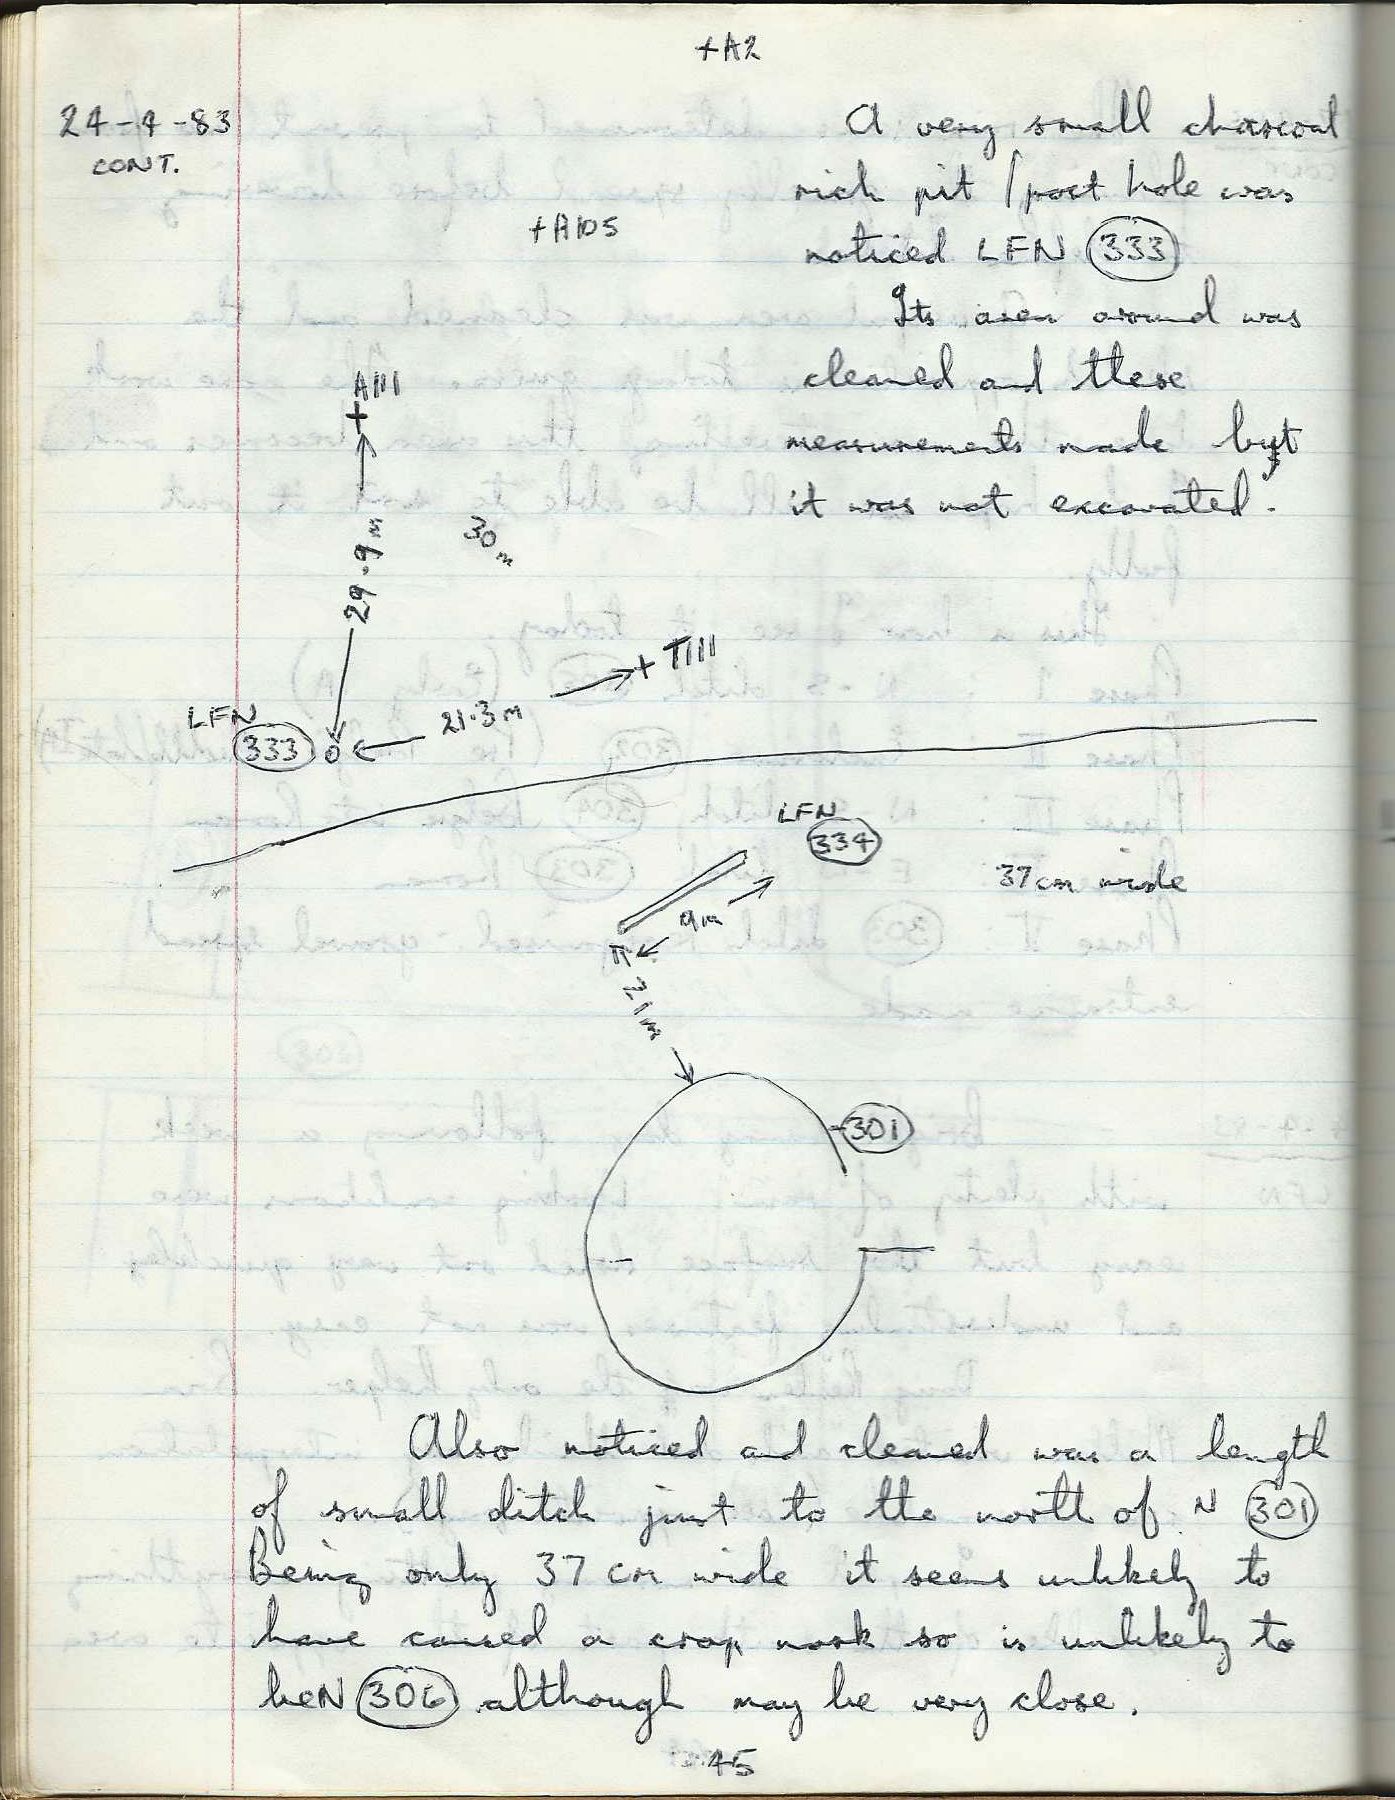 +A2
24-4-83
CONT.
A very small charcoal
rich pit / post hole was
noticed LFN 333
Its area around was
cleaned and these
measurements made but
it was not excavated.
+A105
A111
+
29.9m
30m
+ T111
21.3m
LFN
333
LFN
334
37cm wide
9m
21m
301
Also noticed and cleaned was a length
of small ditch just to the north of N 301
Being only 37 cm wide it seems unlikely to
have caused a crop mark so is unlikely to
be N 306 although may be very close.
45